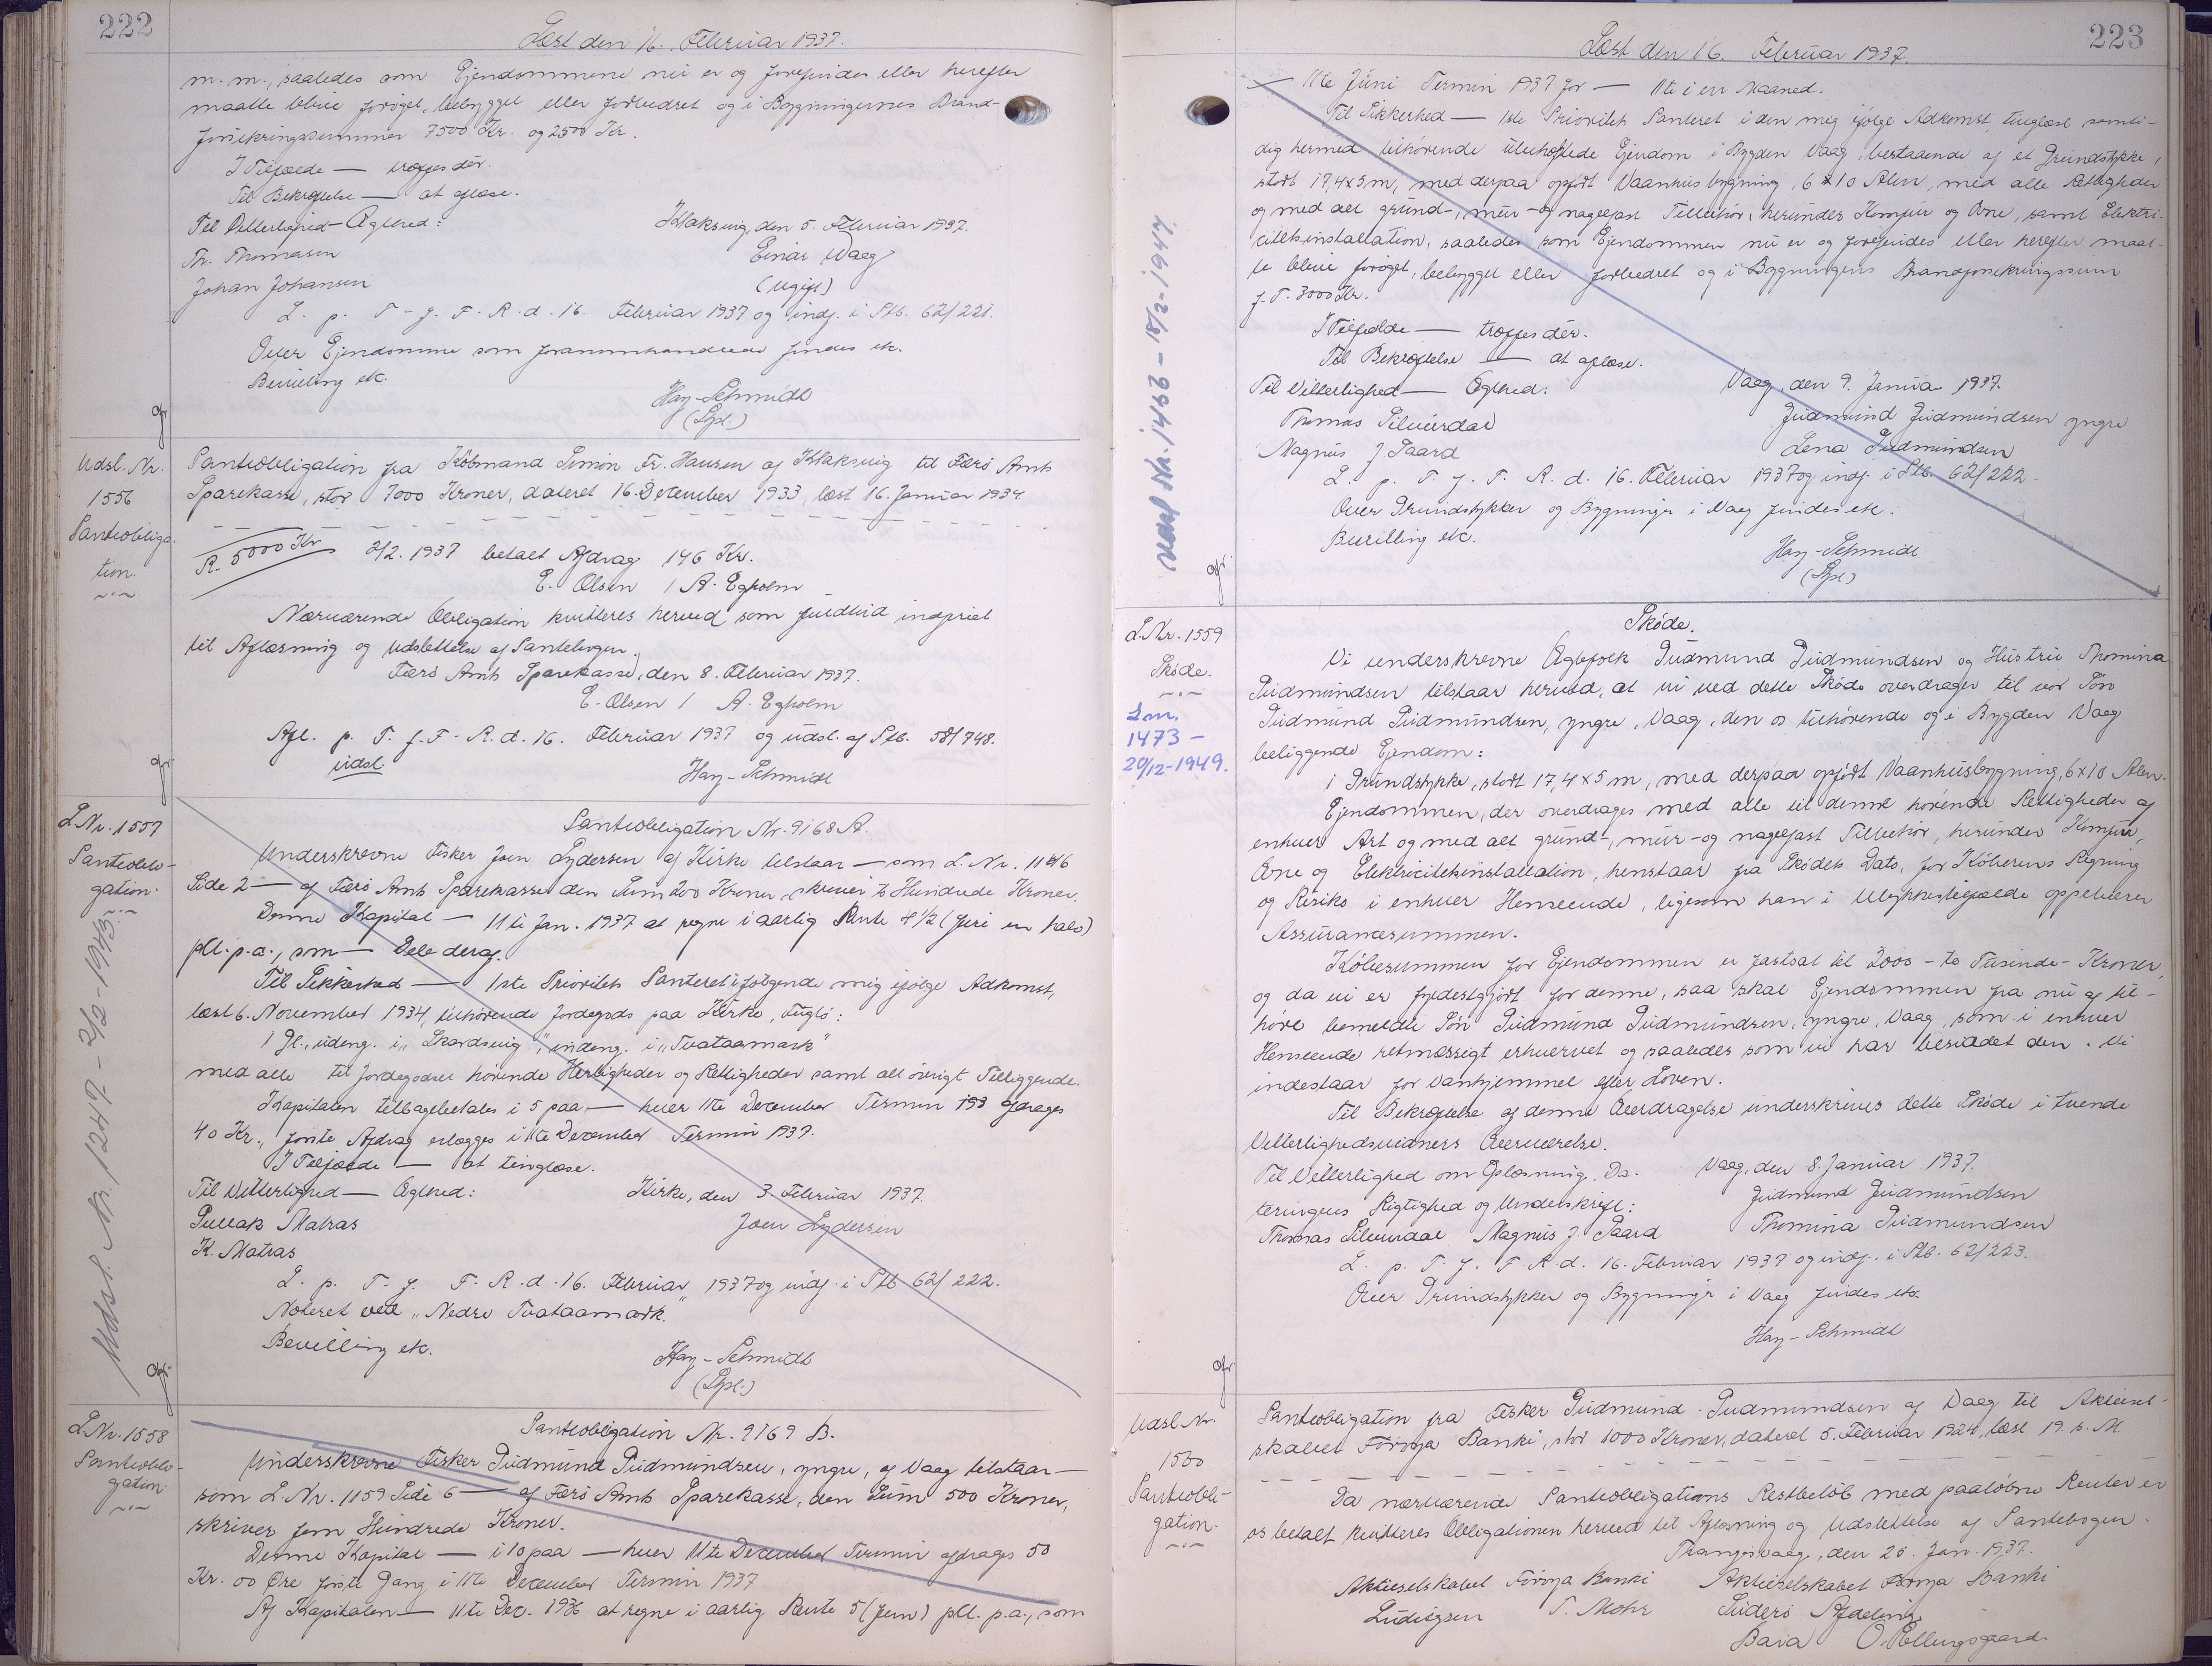 222
Læst den 16. Februar 1937.
m.m., saaledes som Ejendommene nu er og forefindes eller herefter
maatte blive forøget, bebygget eller forbedret og i Bygningernes Brand-
forsikringssummer 7500 Kr. og 2500 Kr.
I Tilfælde — træffes dér.
Til Bekræftelse — at aflæse.
Til Vitterlighed - Ægthed:
Klaksvig, den 5. Februar 1937.
Th. Thomasen
Einar Waag
Johan Johansen
(ugift)
L. p. T. f. F. R. d. 16. Februar 1937 og indf. i Ptb. 62/221.
Over Ejendomme som forannumhandlede findes etc.
Bevilling etc.
Hay-Schmidt
(Lgsl.)
Udsl. Nr.
1556
Panteobliga-
tion.
Panteobligation fra Købmand Simon Fr. Hansen af Klaksvig til Færø Amts
Sparekasse, stor 7000 Kroner, dateret 16. December 1933, læst 16. Januar 1934
R. 5000 Kr
2/2. 1937 betalt Afdrag 146 Kr.
E. Olsen / A. Egholm
Nærværende Obligation kvitteres herved som fuldtud indfriet
til Aflæsning og Udslettelse af Pantebogen.
Færø Amts Sparekasse, den 8. Februar 1937.
E. Olsen / A. Egholm
Afl. p. T. f. F. R. d. 16. Februar 1937 og udsl. af Ptb. 58/748.
udsl.
Hay-Schmidt
L Nr. 1557
Panteobli-
gation.
Udsl. Nr. 1247 - 2/2-1943.
Panteobligation Nr. 9168 A.
Underskrevne Fisker Joen Lydersen af Kirke tilstaar — som L. Nr. 1146
Side 2 — af Færø Amts Sparekasse den Sum 200 Kroner, skriver to Hundrede Kroner.
Denne Kapital — 11te Jan. 1937 at regne i aarlig Rente 4½ (fire en halv)
pCt. p.a., som — Dele deraf.
Til Sikkerhed — 1ste Prioritets Panteret i følgende mig ifølge Adkomst,
læst 6. November 1934, tilhørende Jordegods paa Kirke, Fuglø:
1 Gl., udeng. i "Skardsvig", indeng. i "Tvataamark"
med alle til Jordegodset hørende Herligheder og Rettigheder samt alt øvrigt Tilliggende.
Kapitalen tilbagebetales i 5 paa — hver 11te December Termin 193 afdrages
40 Kr., første Afdrag erlægges i 11te December Termin 1937.
I Tilfælde — at tinglæse.
Til Vitterlighed — Ægthed:
Kirke, den 3. Februar 1937.
Joen Lydersen
K. Matras
L. p. T. f. F. R. d. 16. Februar 1937 og indf. i Ptb 62/222.
Noteret ved "Nedre Tvataamark."
Bevilling etc.
Hay-Schmidt
(Lgsl.)
L Nr. 1558
Panteobli-
gation.
Panteobligation Nr. 9169 B.
Underskrevne Fisker Gudmund Gudmundsen, yngre, af Vaag tilstaar —
som L. Nr. 1159 Side 6 — af Færø Amts Sparekasse, den Sum 500 Kroner,
skriver fem Hundrede Kroner.
Denne Kapital — i 10 paa — hver 11te December Termin afdrages 50
Kr. 00 Øre første Gang i 11te December Termin 1937
Af Kapitalen — 11te Dec. 1936 at regne i aarlig Rente 5 (fem) pCt. p.a., som
223
Læst den 16. Februar 1937.
— 11te Juni Termin 1937 for — 11te i en Maaned.
Til Sikkerhed — 1ste Prioritets Panteret i den mig ifølge Adkomst, tinglæst samti-
dig hermed tilhørende ubehæftede Ejendom i Bygden Vaag, bestaaende af et Grundstykke,
stort 17,4x5 m, med derpaa opført Vaanhusbygning, 6x10 Alen, med alle Rettigheder
og med alt grund-, mur- og nagelfast Tilbehør, herunder Komfur og Ovne, samt Elektri-
citetsinstallation, saaledes som Ejendommen nu er og forefindes eller herefter maat-
te blive forøget, bebygget eller forbedret og i Bygningens Brandforsikringssum
f.T. 3000 Kr.
I Tilfælde — træffes dér.
Til Bekræftelse — at aflæse.
Til Vitterlighed — Ægthed:
Vaag, den 9. Januar 1937.
Thomas Silverdal
Gudmund Gudmundsen yngre
Magnus J Paard
Lena Gudmundsen
L. p. T. f. F. R. d. 16. Februar 1937 og indf. i Ptb. 62/222.
Over Grundstykker og Bygninger i Vaag findes etc.
Bevilling etc.
Hay-Schmidt
(Lgsl.)
Udsl Nr. 1456 - 15/2-1947.
L. Nr. 1559
Skøde.
Lm.
1473 -
20/12-1949.
Skøde.
Vi underskrevne Ægtefolk Gudmund Gudmundsen og Hustru Thomina
Gudmundsen tilstaar herved, at vi ved dette Skøde overdrager til vor Søn
Gudmund Gudmundsen, yngre, Vaag, den os tilhørende og i Bygden Vaag
beliggende Ejendom:
1 Grundstykke, stort 17,4x5 m, med derpaa opført Vaanhusbygning, 6x10 Alen.
Ejendommen, der overdrages med alle til denne hørende Rettigheder af
enhver Art og med alt grund-, mur- og nagelfast Tilbehør, herunder Komfur,
Ovne og Elektricitetsinstallation, henstaar fra Skødets Dato, for Køberens Regning
og Risiko i enhver Henseende, ligesom han i Ulykkestilfælde oppebærer
Assurancesummen.
Købesummen for Ejendommen er fastsat til 2000 - to Tusinde - Kroner,
og da vi er fyldestgjort for denne, saa skal Ejendommen fra nu af til-
høre bemeldte Søn Gudmund Gudmundsen, yngre, Vaag, som i enhver
Henseende retmæssigt erhvervet og saaledes som vi har besiddet den. Vi
indestaar for Vanhjemmel efter Loven.
Til Bekræftelse af denne Overdragelse underskrives dette Skøde i tvende
Vitterlighedsvidners Overværelse.
Til Vitterlighed om Oplæsning, Da-
Vaag, den 8. Januar 1937.
teringens Rigtighed og Underskrift:
Gudmund Gudmundsen
Thomas Silverdal Magnus J. Paard
Thomina Gudmundsen
L. p. T. f. F. R. d. 16. Februar 1937 og indf. i Ptb. 62/223.
Over Grundstykker og Bygninger i Vaag findes etc.
Hay-Schmidt
Udsl. Nr.
1560
Panteobli-
gation.
Panteobligation fra Fisker Gudmund Gudmundsen af Vaag til Aktiesel-
skabet Føroya Banki, stor 1000 Kroner, dateret 5. Februar 1924, læst 19. s. M.
Da nærværende Panteobligations Restbeløb med paaløbne Renter er
os betalt kvitteres Obligationen herved til Aflæsning og Udslettelse af Pantebogen.
Trangisvaag, den 26. Jan. 1937.
Aktieselskabet Føroya Banki
Aktieselskabet Føroya Banki
Ludvigsen T. Mohr
Suderø Afdeling
O. Effersgaard